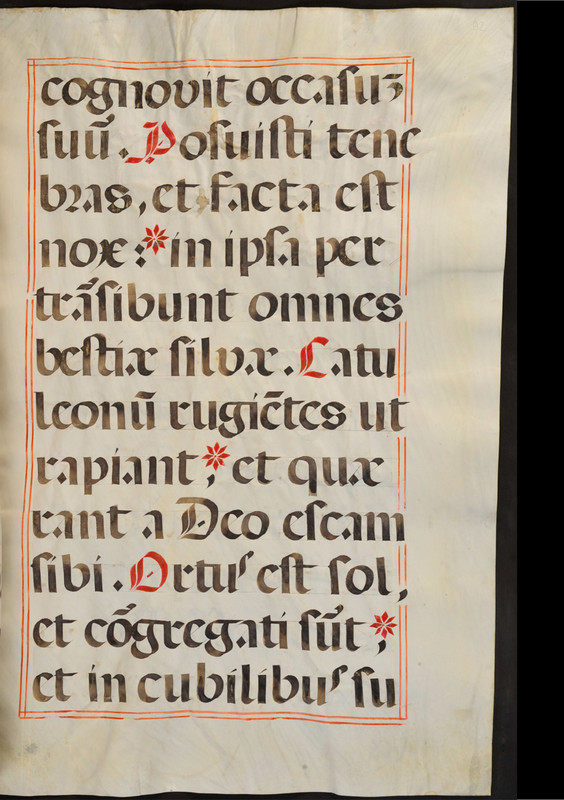 cognovit occaſuꝫ
ſuū. Poſuiſti tene
bꝛas, et facta eſt
nox: * in ipſa per
trāſibunt omnes
beſtiæ ſilvæ. Catu
leonū rugiētes ut
rapiant, * et quæ
rant a Deo eſcam
ſibi. Ortuſ eſt ſol,
et cōgregati ſūt, *
et in cubilibuſ ſu